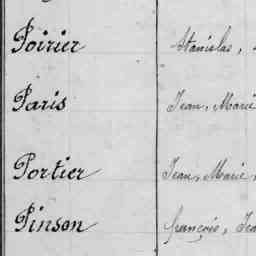 Poirier Stanislas,
Paris Jean, Marie
Portier Jean, Marie,
Pinson françois, Jea